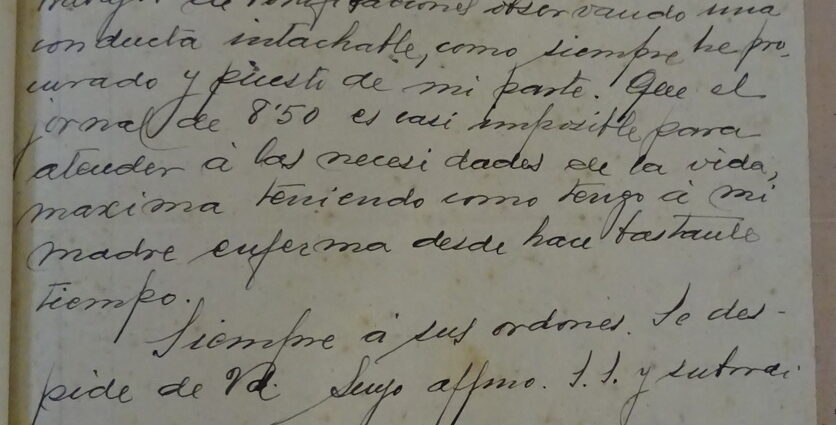 de bonificaciones observando una
conducta intachable, como siempre he pro-
curado y puesto de mi parte. Que el
jornal de 8'50 es casi imposible para
atender á las necesidades de la vida,
maxima teniendo como tengo á mi
madre enferma desde hace bastante
tiempo.
Siempre á sus ordones. Se des-
pide de Vd. Suyo affmo. S. S. y